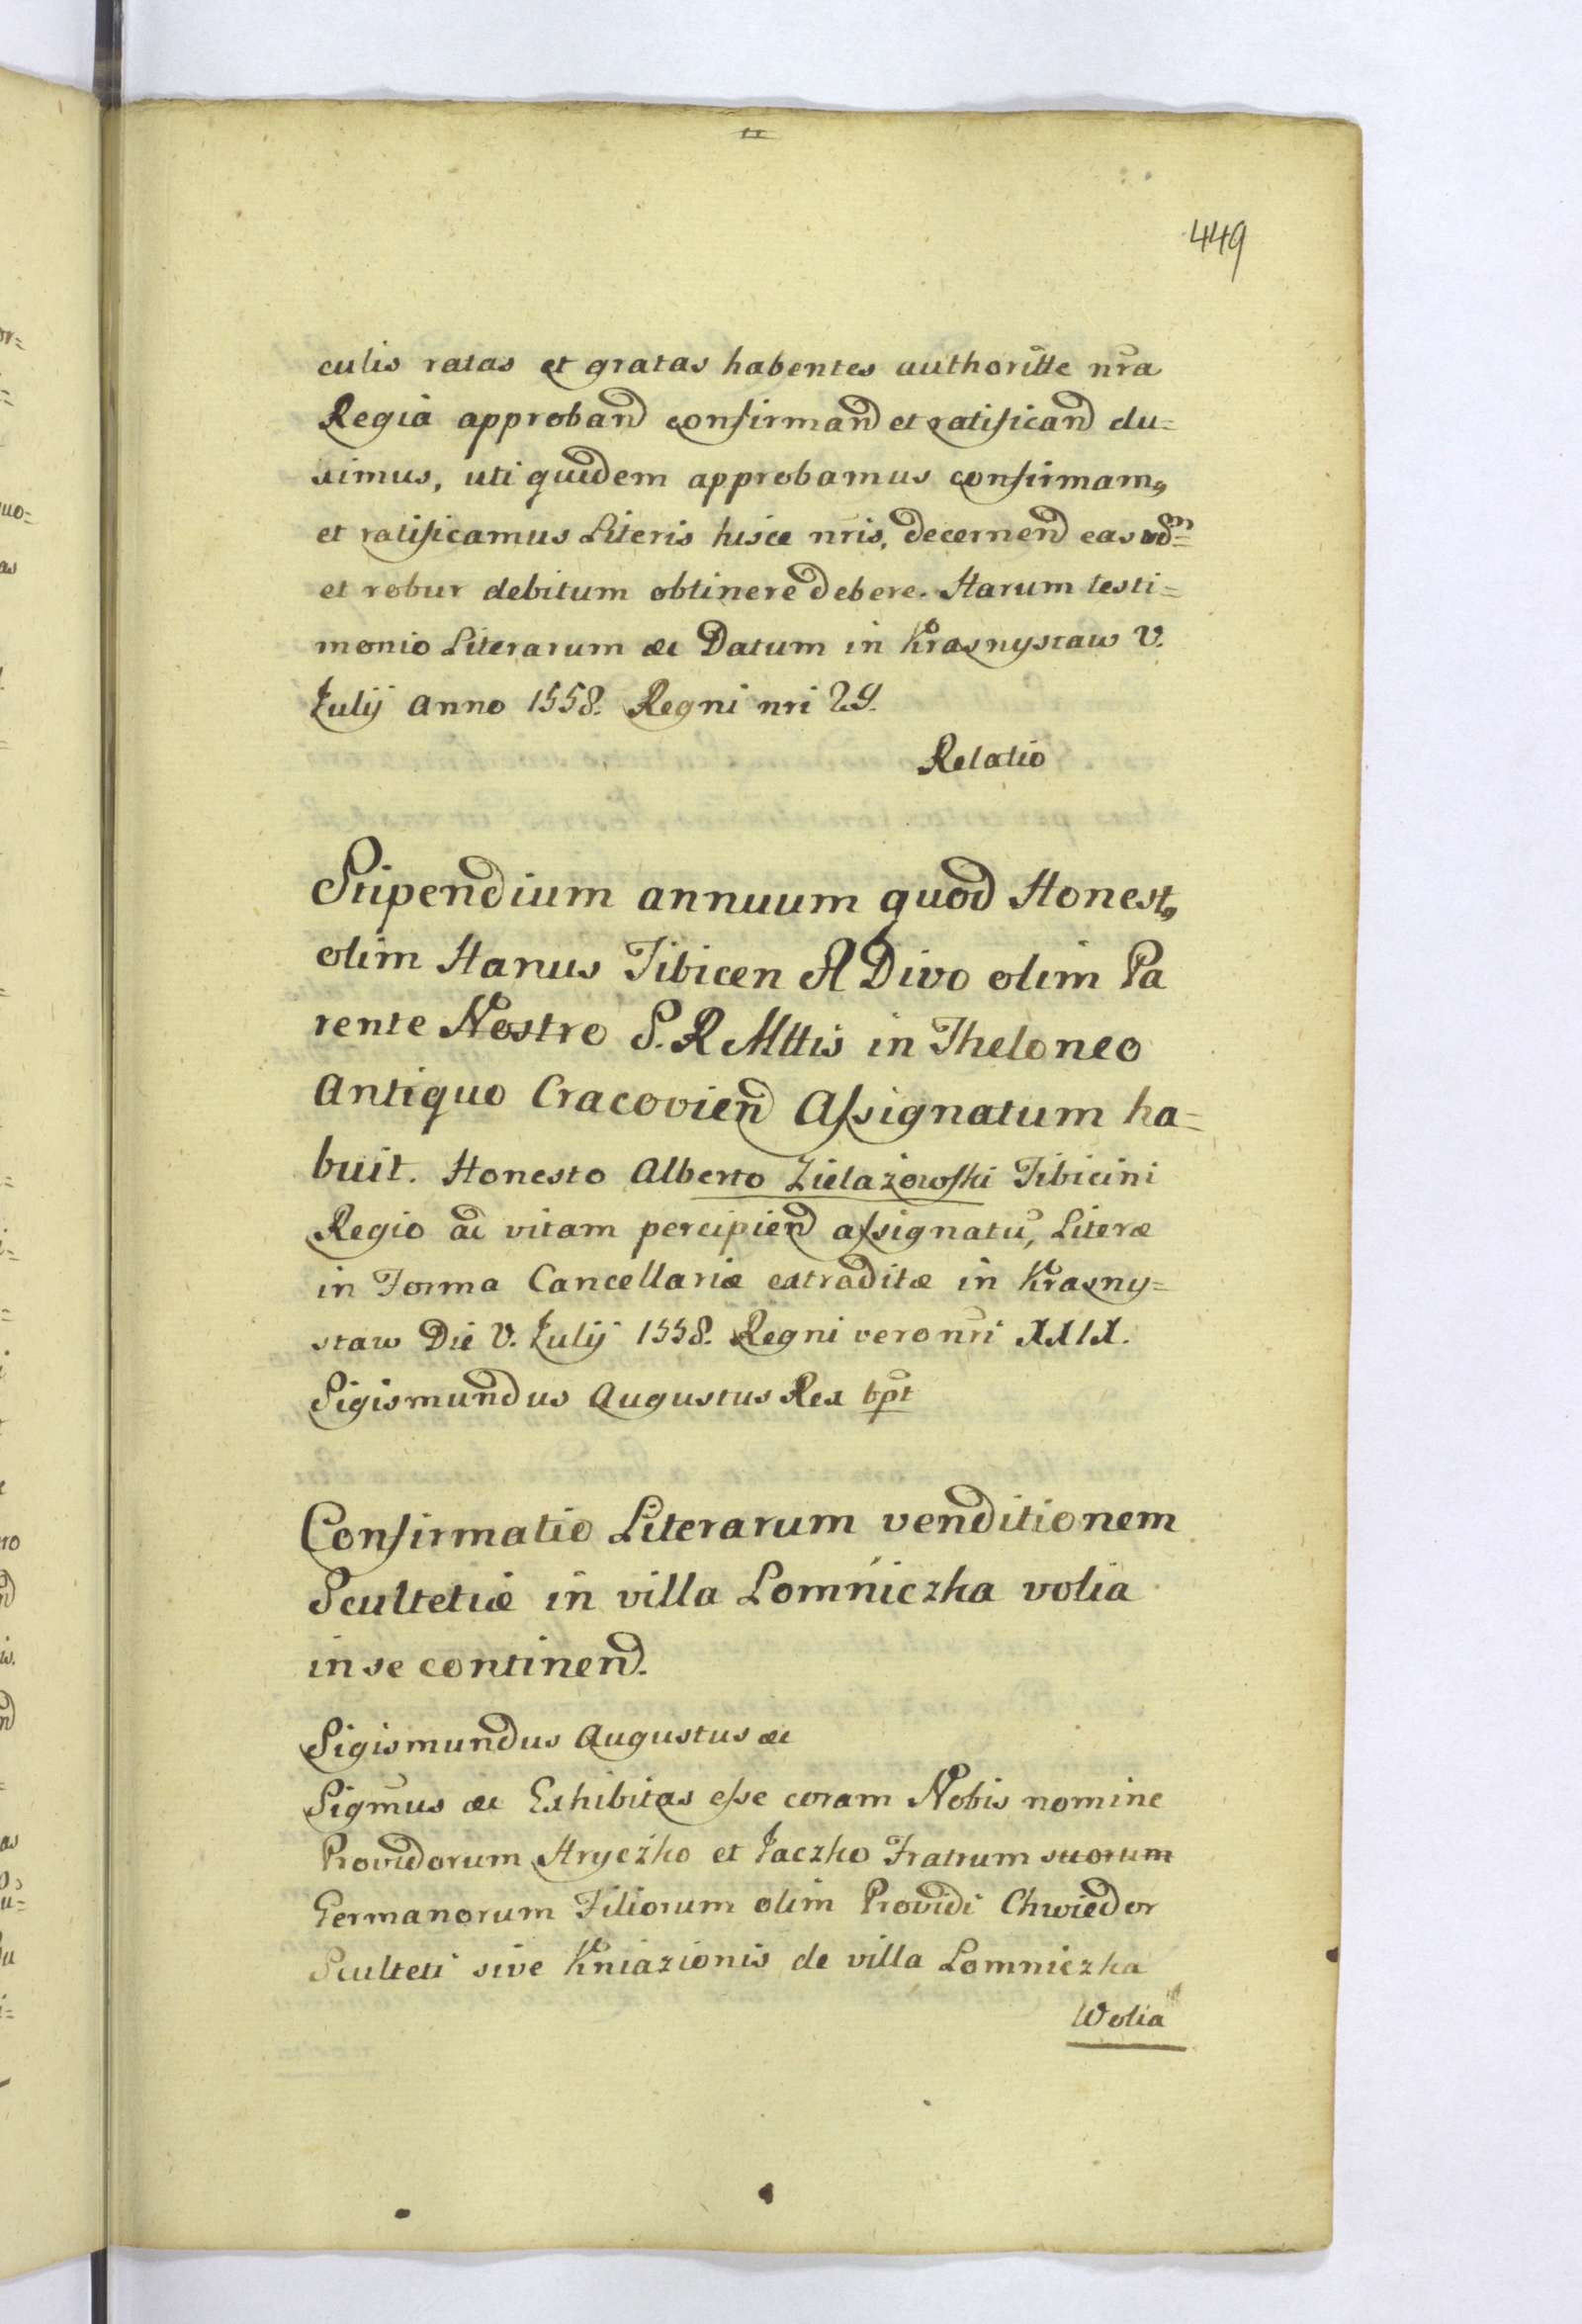 449
culis ratas et gratas habentes authoritte nra
Regia approband confirmand et ratificand du=
ximus, uti quidem approbamus confirmam9
et ratificamus Literis hisce nris, decernend eas
et robur debitum obtinere debere. Harum testi=
monio Literarum &c Datum in Krasnystaw V.
Julij Anno 1558. Regni nri 29.
Relatio
Stipendium annuum quod Honest9
olim Hanus Tibicen A Divo olim Pa
rente Nostro S. R Mttis in Theloneo
Antiquo Cracovien Assignatum ha=
buit. Honesto Alberto Zielazowski Tibicini
Regio ad vitam percipiend assignatu, Literæ
in Forma Cancellariæ extraditæ in Krasny=
staw Die V. Julij 1558. Regni vero nri XXIX.
Sigismundus Augustus Rex
Confirmatio Literarum venditionem
Scultetiæ in villa Lomniczka volia
in se continend.
Sigismundus Augustus &c
Sigmus &c Exhibitas esse coram Nobis nomine
Providorum Hryczko et Jaczko Fratrum suorum
Germanorum Filiorum olim Providi Chwiedor
Sculteti sive Kniazionis de villa Lomniczka
Wolia